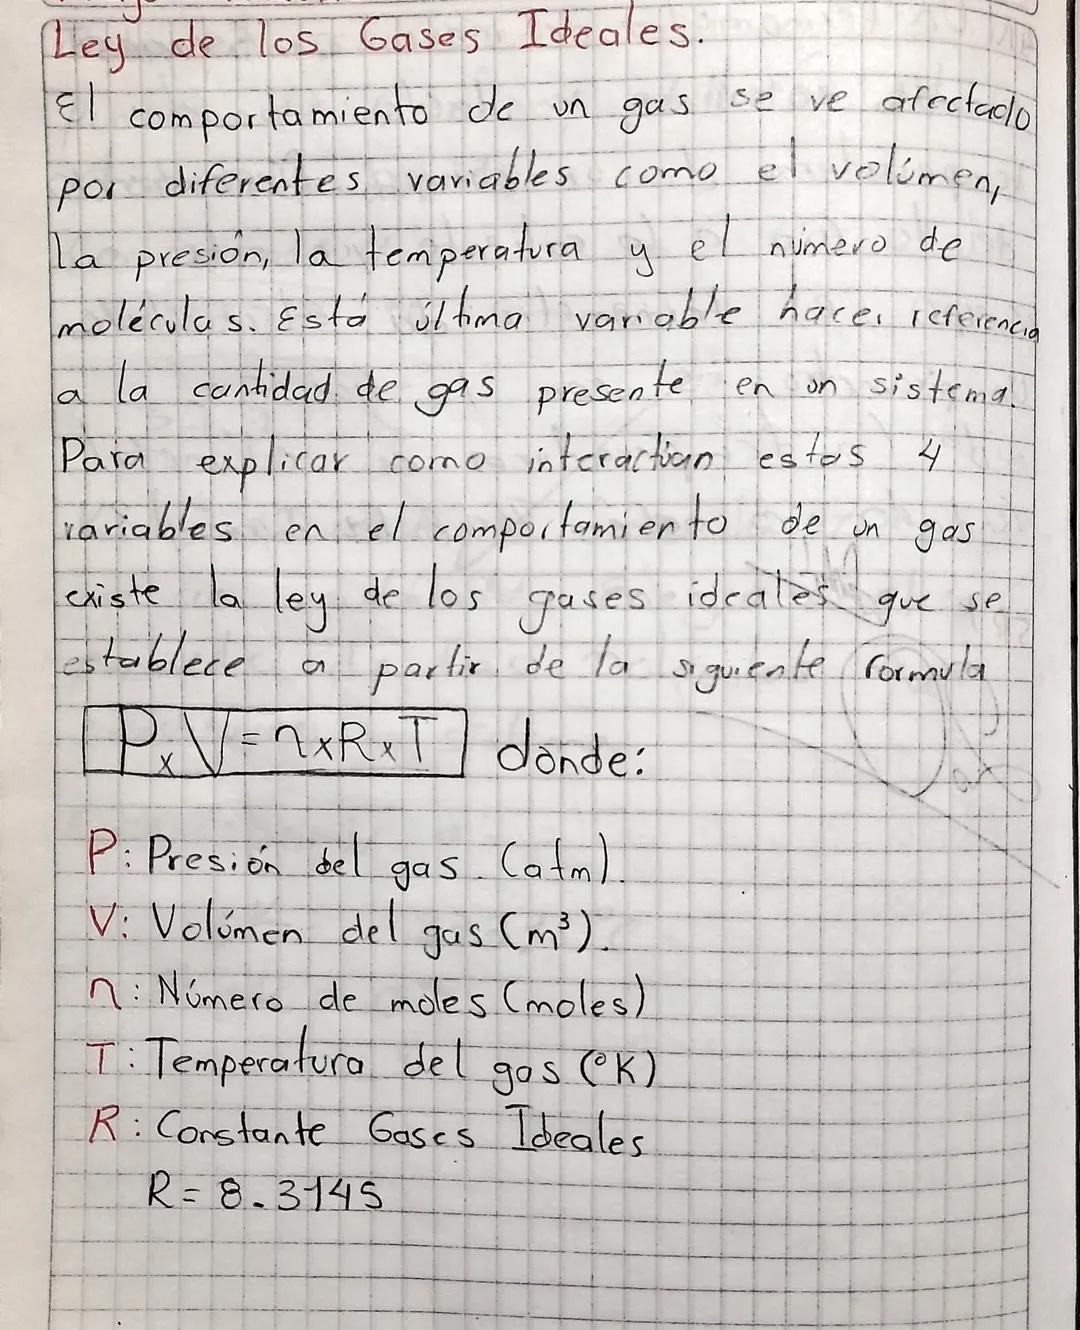 Ley de los Gases Ideales.
El comportamiento de un gas se ve afectado
por diferentes variables como el volúmen,
la presión, la temperatura y el número de
moléculas. Está última variable hacer referencia
a la cantidad de gas presente en un sistema.
Para explicar como interactúan estas 4
variables en el comportamiento de un gas
existe la ley de los gases ideales que se
establece a partir de la siguiente formula
PxV=nxRxT donde:
P: Presión del gas. (atm).
V: Volúmen del gas (m³).
n: Número de moles (moles)
T: Temperatura del gas (°K)
R: Constante Gases Ideales
R= 8.3145